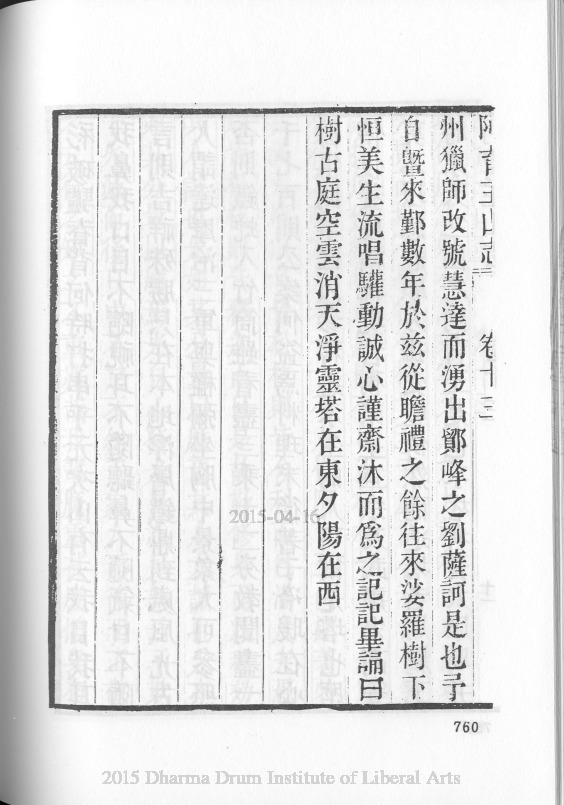 阿育王山志　卷十三
州獵師改號慧達而湧出鄮峰之劉薩訶是也予
自暨來鄞數年於茲從瞻禮之餘往來娑羅樹下
恒美生流唱驩動誠心謹齋沐而為之記記畢論曰
樹古庭空雲消天淨靈塔在東夕陽在西
2015-04-16
760
2015 Dharma Drum Institute of Liberal Arts